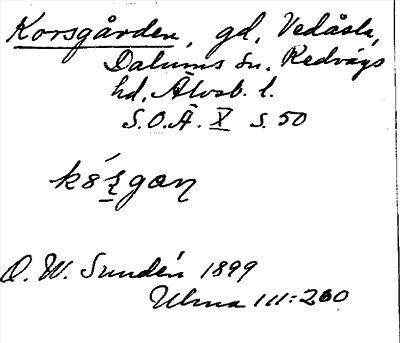 Korsgården, gd, Vedåsla,
Dalums sn. Redvägs
hd, Älvsb. l.
S.O.Ä. X s. 50
O. W. Sundén 1899
Ulma 111:260